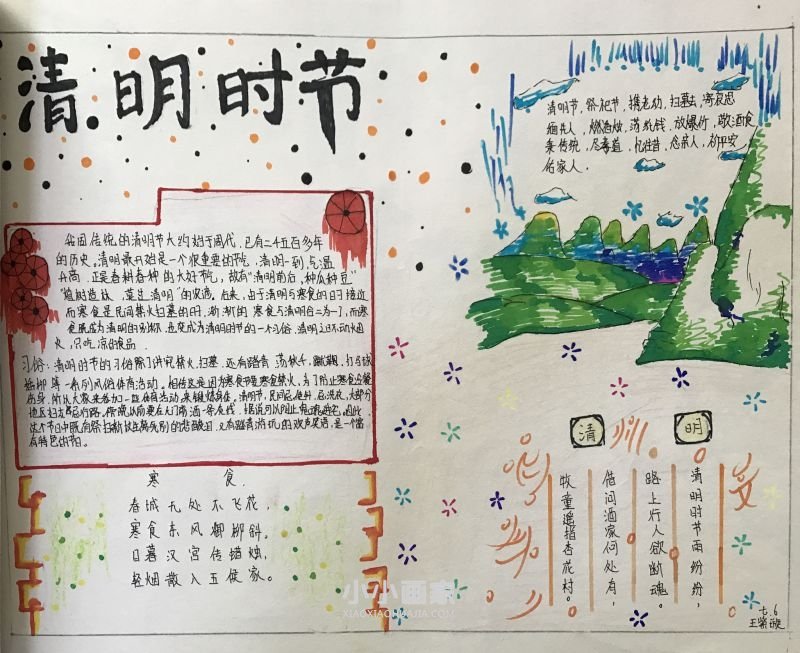 清明时节
我国传统的清明节大约始于周代,已有二千五百多年
的历史,清明最开始是一个很重要的节气,清明一到,气温
升高,正是春耕春种的大好节气,故有"清明前后,种瓜种豆"
"植树造林,莫过清明"的农谚。后来,由于清明与寒食的日子接近
而寒食是民间禁火扫墓的日子,渐渐的寒食与清明合二为一了,而寒
食既成为清明的别称,也变成为清明时节的一个习俗,清明之日不动烟
火,只吃凉的食品
习俗:清明的节的习俗除了讲究禁火、扫墓,还有踏青、荡秋千、蹴鞠、打马球
插柳等一系列风俗体育活动。相传这是因为寒食节要寒食禁火,为了防止寒食冷餐
伤身,所以大家来参加一些体育活动,来锻炼身体。清明节,民间忌使针,忌洗衣,大部分
地区妇女忌行路。
这个节日中既有祭扫新坟生离死别的悲酸泪,又有踏青游玩的欢声笑语,是一个富
有特色的节日。
寒食
春城无处不飞花,
寒食东风御柳斜。
日暮汉宫传蜡烛,
轻烟散入五侯家。
清明节,祭祀节,携老幼,扫墓去,寄哀思
缅先人,燃香烛,荡纸钱,放爆竹,敬酒食
秉传统,尽孝道,忆往昔,念亲人,祈平安
佑家人.
清明
清明时节雨纷纷,
路上行人欲断魂。
借问酒家何处有,
牧童遥指杏花村。
七.6
王紫璇
小小画家
XIAOXIAOHUAJIA.COM